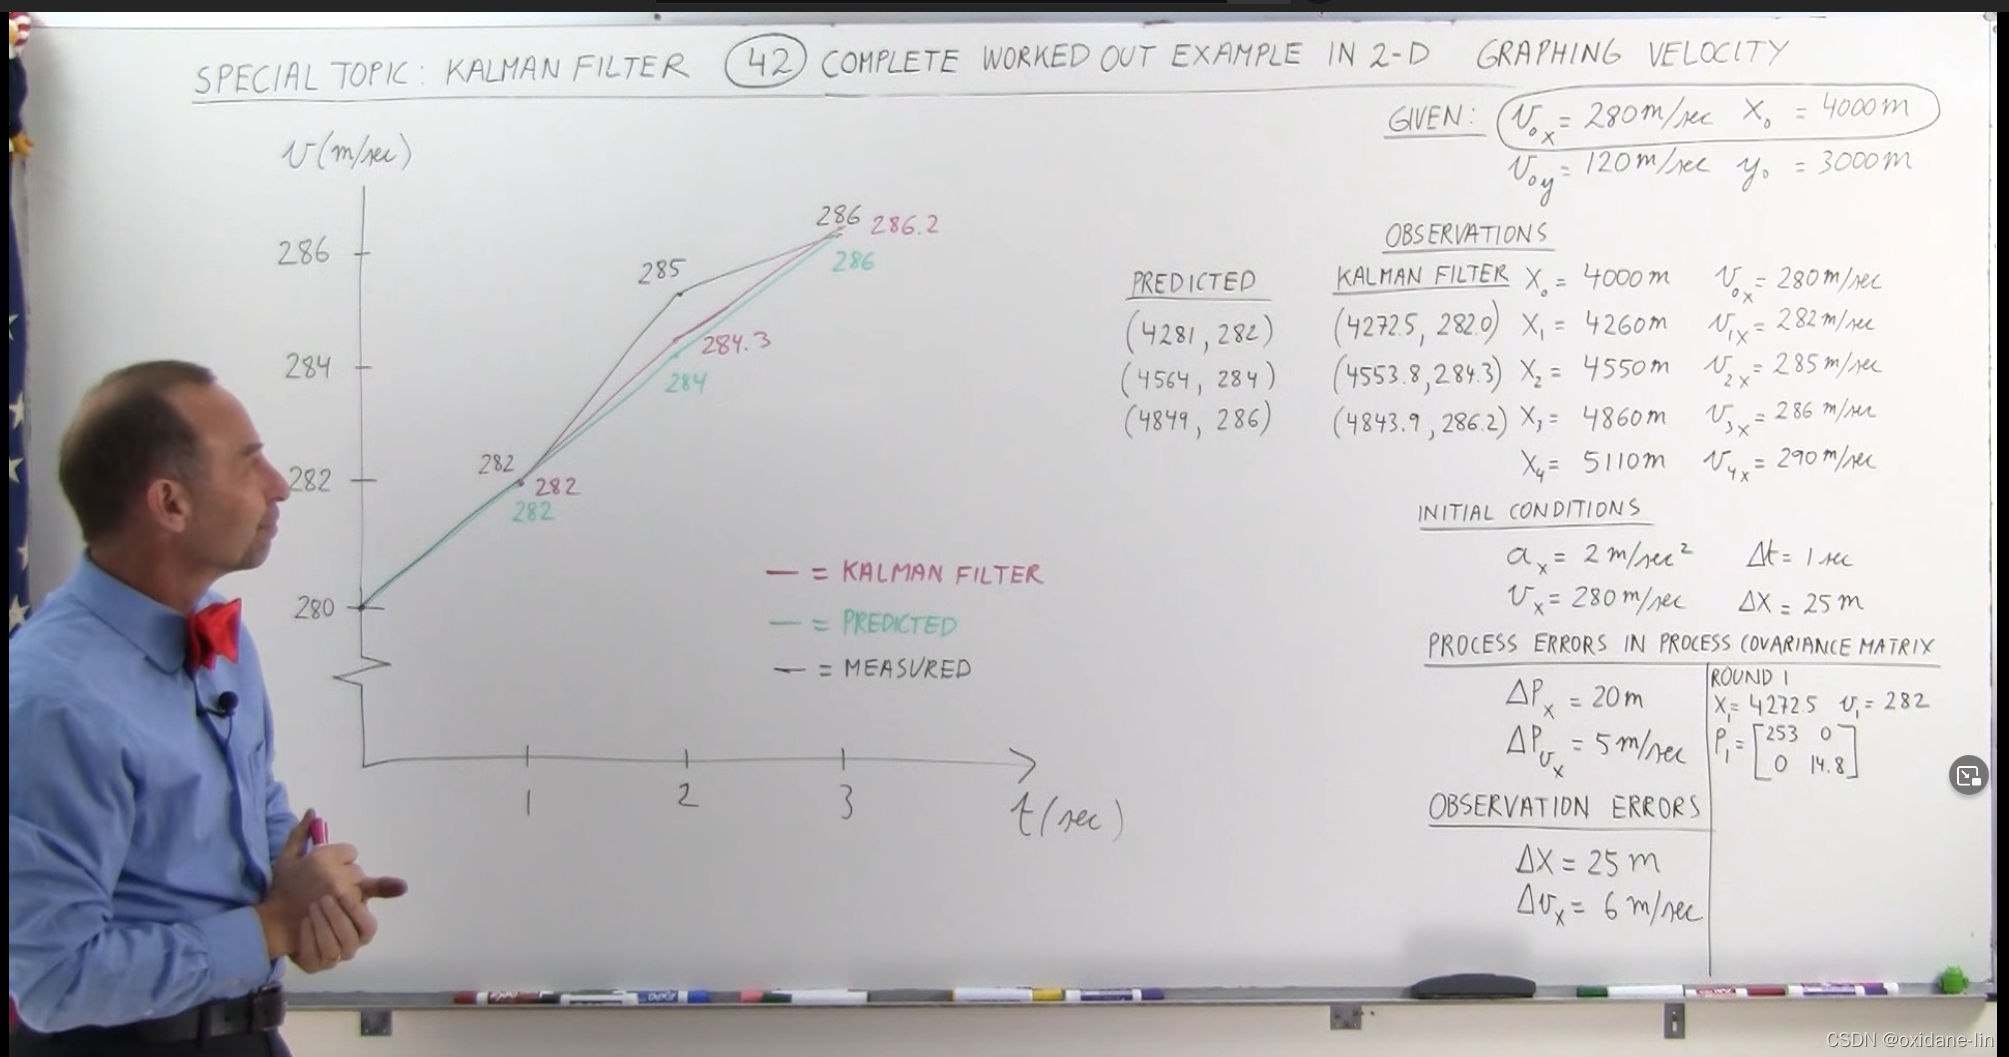 SPECIAL TOPIC: KALMAN FILTER 42 COMPLETE WORKED OUT EXAMPLE IN 2-D GRAPHING VELOCITY
GIVEN: v₀ₓ = 280 m/sec X₀ = 4000 m
v₀y = 120 m/sec y₀ = 3000 m
v(m/sec)
286
284
282
280
282
282
282
285
284.3
284
286
286.2
286
— = KALMAN FILTER
— = PREDICTED
— = MEASURED
1 2 3 t(sec)
OBSERVATIONS
PREDICTED KALMAN FILTER X₀ = 4000 m v₀ₓ = 280 m/sec
(4281, 282) (4272.5, 282.0) X₁ = 4260 m v₁ₓ = 282 m/sec
(4564, 284) (4553.8, 284.3) X₂ = 4550 m v₂ₓ = 285 m/sec
(4849, 286) (4843.9, 286.2) X₃ = 4860 m v₃ₓ = 286 m/sec
X₄ = 5110 m v₄ₓ = 290 m/sec
INITIAL CONDITIONS
aₓ = 2 m/sec² Δt = 1 sec
vₓ = 280 m/sec ΔX = 25 m
PROCESS ERRORS IN PROCESS COVARIANCE MATRIX
ΔPₓ = 20 m
ΔPvₓ = 5 m/sec
ROUND 1
X₁ = 4272.5 v₁ = 282
P₁ = [253 0
0 14.8]
OBSERVATION ERRORS
ΔX = 25 m
Δvₓ = 6 m/sec
CSDN @oxidane-lin